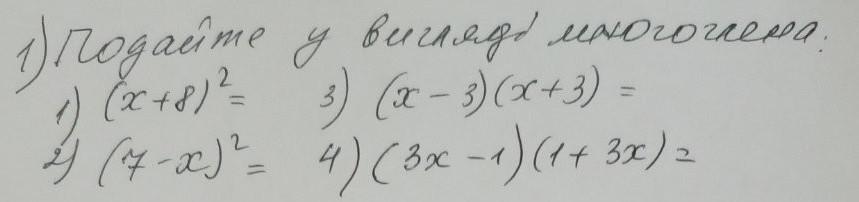 1) Подайте у вигляді многочлена:
1) (x+8)²= 3) (x-3)(x+3) =
2) (7-x)²= 4) (3x-1)(1+3x)=